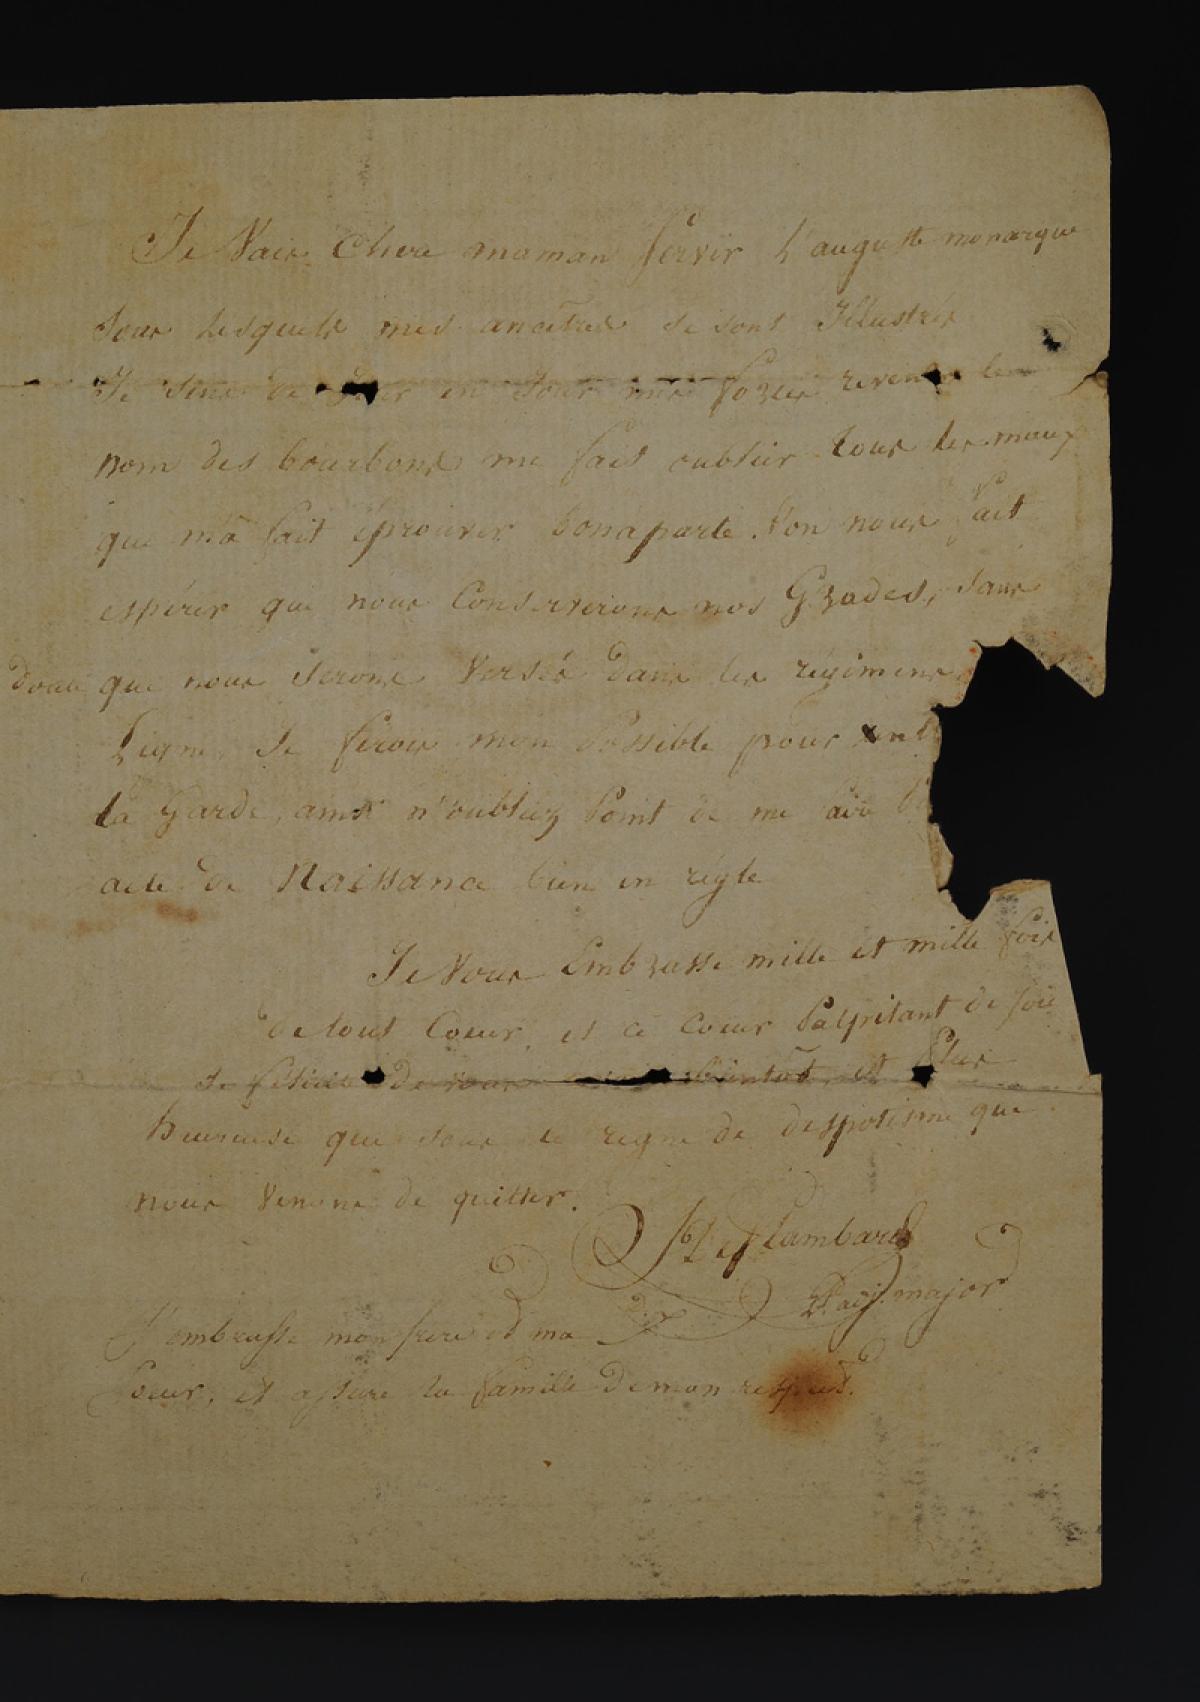 Je Vais Chere maman Servir L'auguste monarque
Sous lesquels mes ancêtres se sont Illustrés
Je sens de Jour en Jour mes forces revenir le
nom des bourbons me fait oublier tous les maux
que m'a fait éprouver bonaparte. l'on nous fait
espérer que nous Conserverons nos Grades, sans
doute que nous serons Versés dans les régimens
Ligne, Je ferois mon Possible pour ent
la Garde, ainsi n'oubliez Point de me
acte de Naissance bien en régle
Je Vous Embrasse mille et mille fois
de tout Coeur, et ce coeur Palpitant de Joie
se félicite de vous bientôt, et Plus
heureuse que sous le regne de despotisme que
nous Venons de quitter.
Lambard
adj. major
J'embrasse mon frere et ma
Soeur, et assure la famille de mon respect.